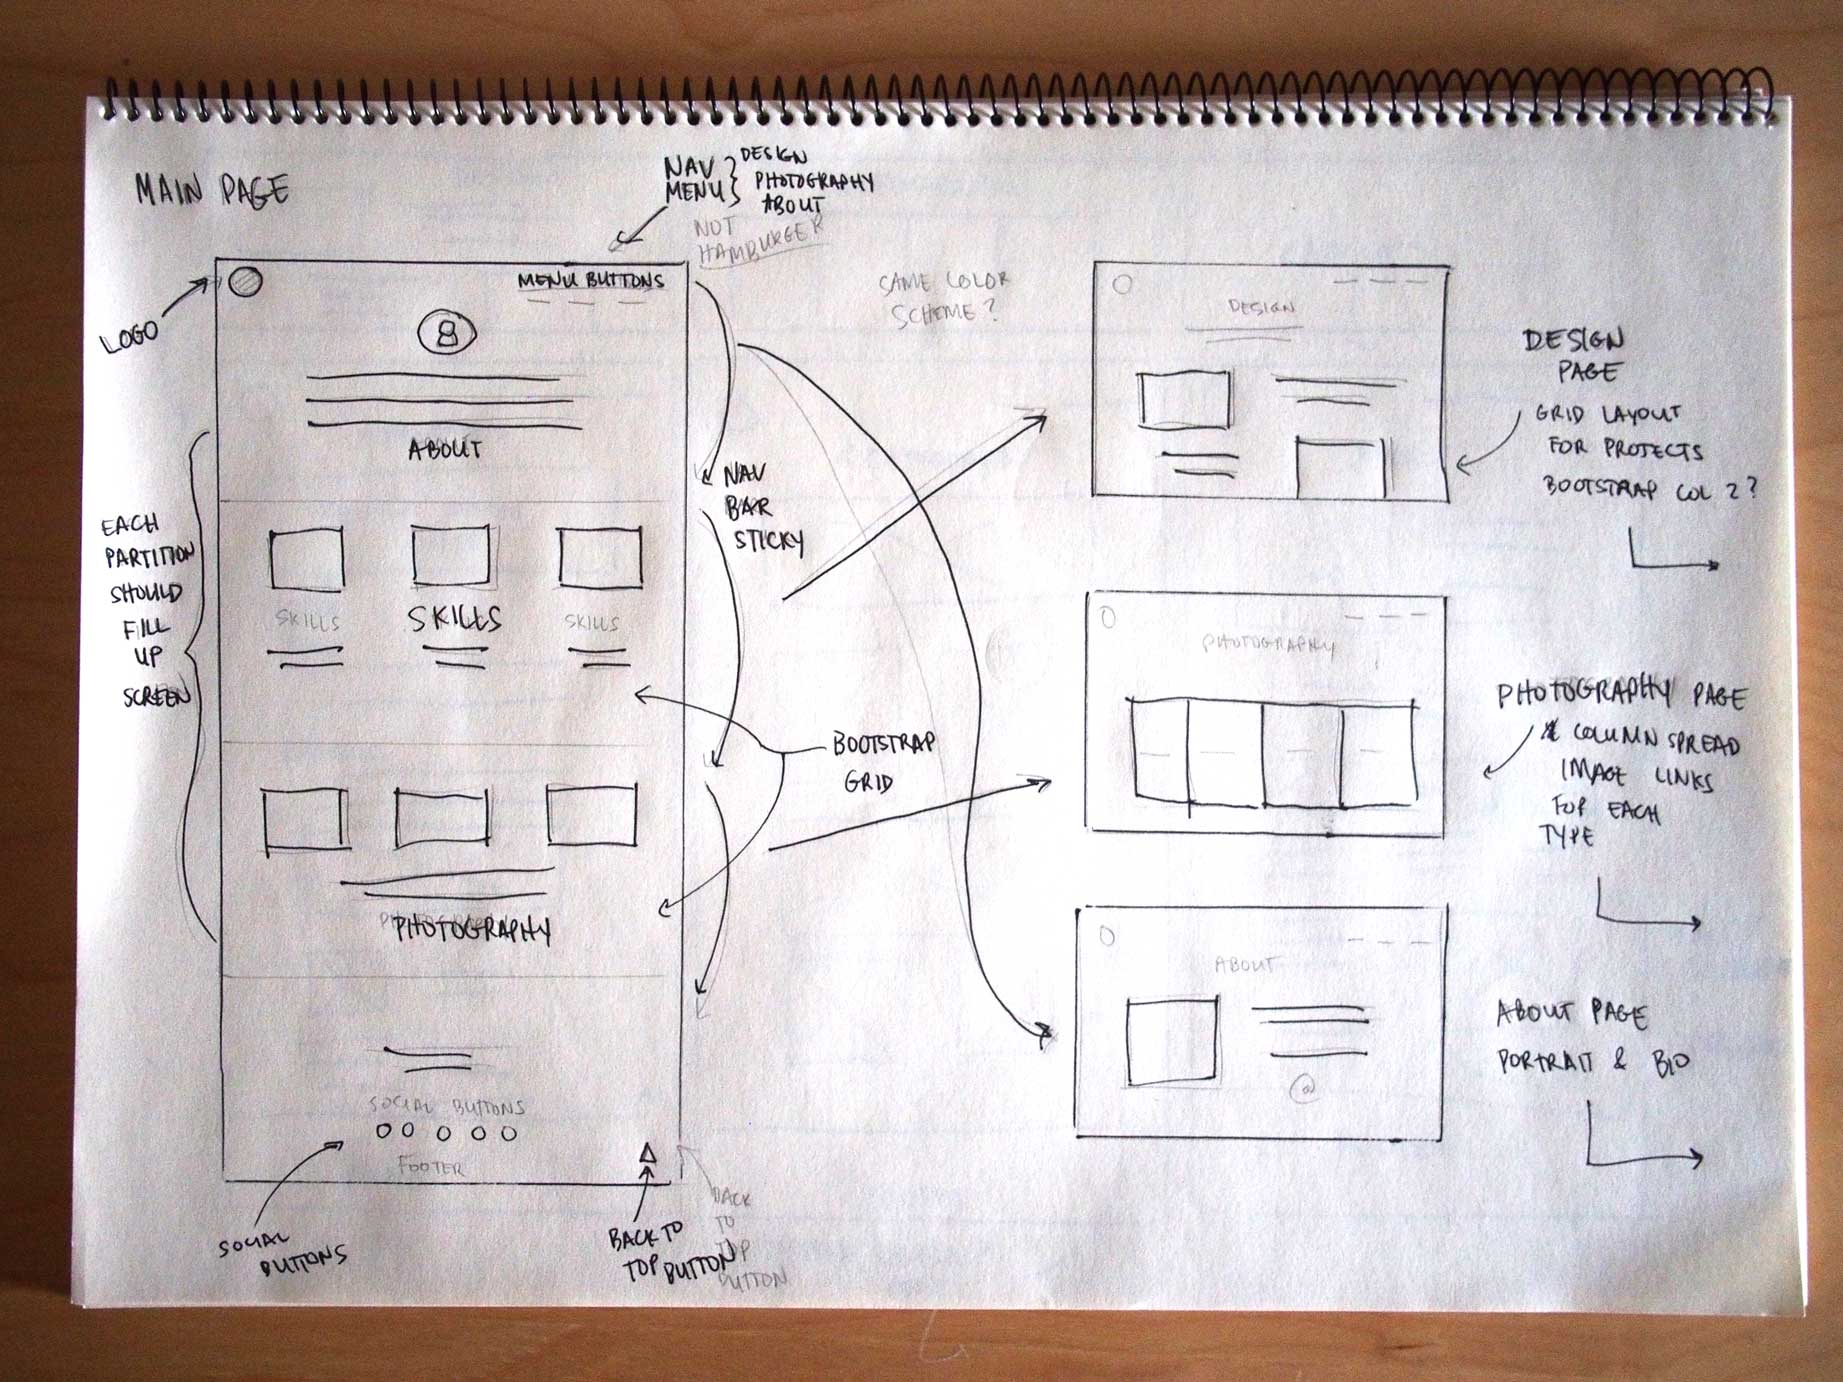 MAIN PAGE
NAV
MENU
DESIGN
PHOTOGRAPHY
ABOUT
NOT
HAMBURGER
LOGO
MENU BUTTONS
ABOUT
EACH
PARTITION
SHOULD
FILL
UP
SCREEN
SKILLS
SKILLS
SKILLS
NAV
BAR
STICKY
BOOTSTRAP
GRID
PHOTOGRAPHY
SOCIAL BUTTONS
FOOTER
SOCIAL
BUTTONS
BACK TO
TOP BUTTON
BACK
TO
TOP
BUTTON
SAME COLOR
SCHEME?
DESIGN
DESIGN
PAGE
GRID LAYOUT
FOR PROJECTS
BOOTSTRAP COL 2?
PHOTOGRAPHY
PHOTOGRAPHY PAGE
COLUMN SPREAD
IMAGE LINKS
FOR EACH
TYPE
ABOUT
@
ABOUT PAGE
PORTRAIT & BIO